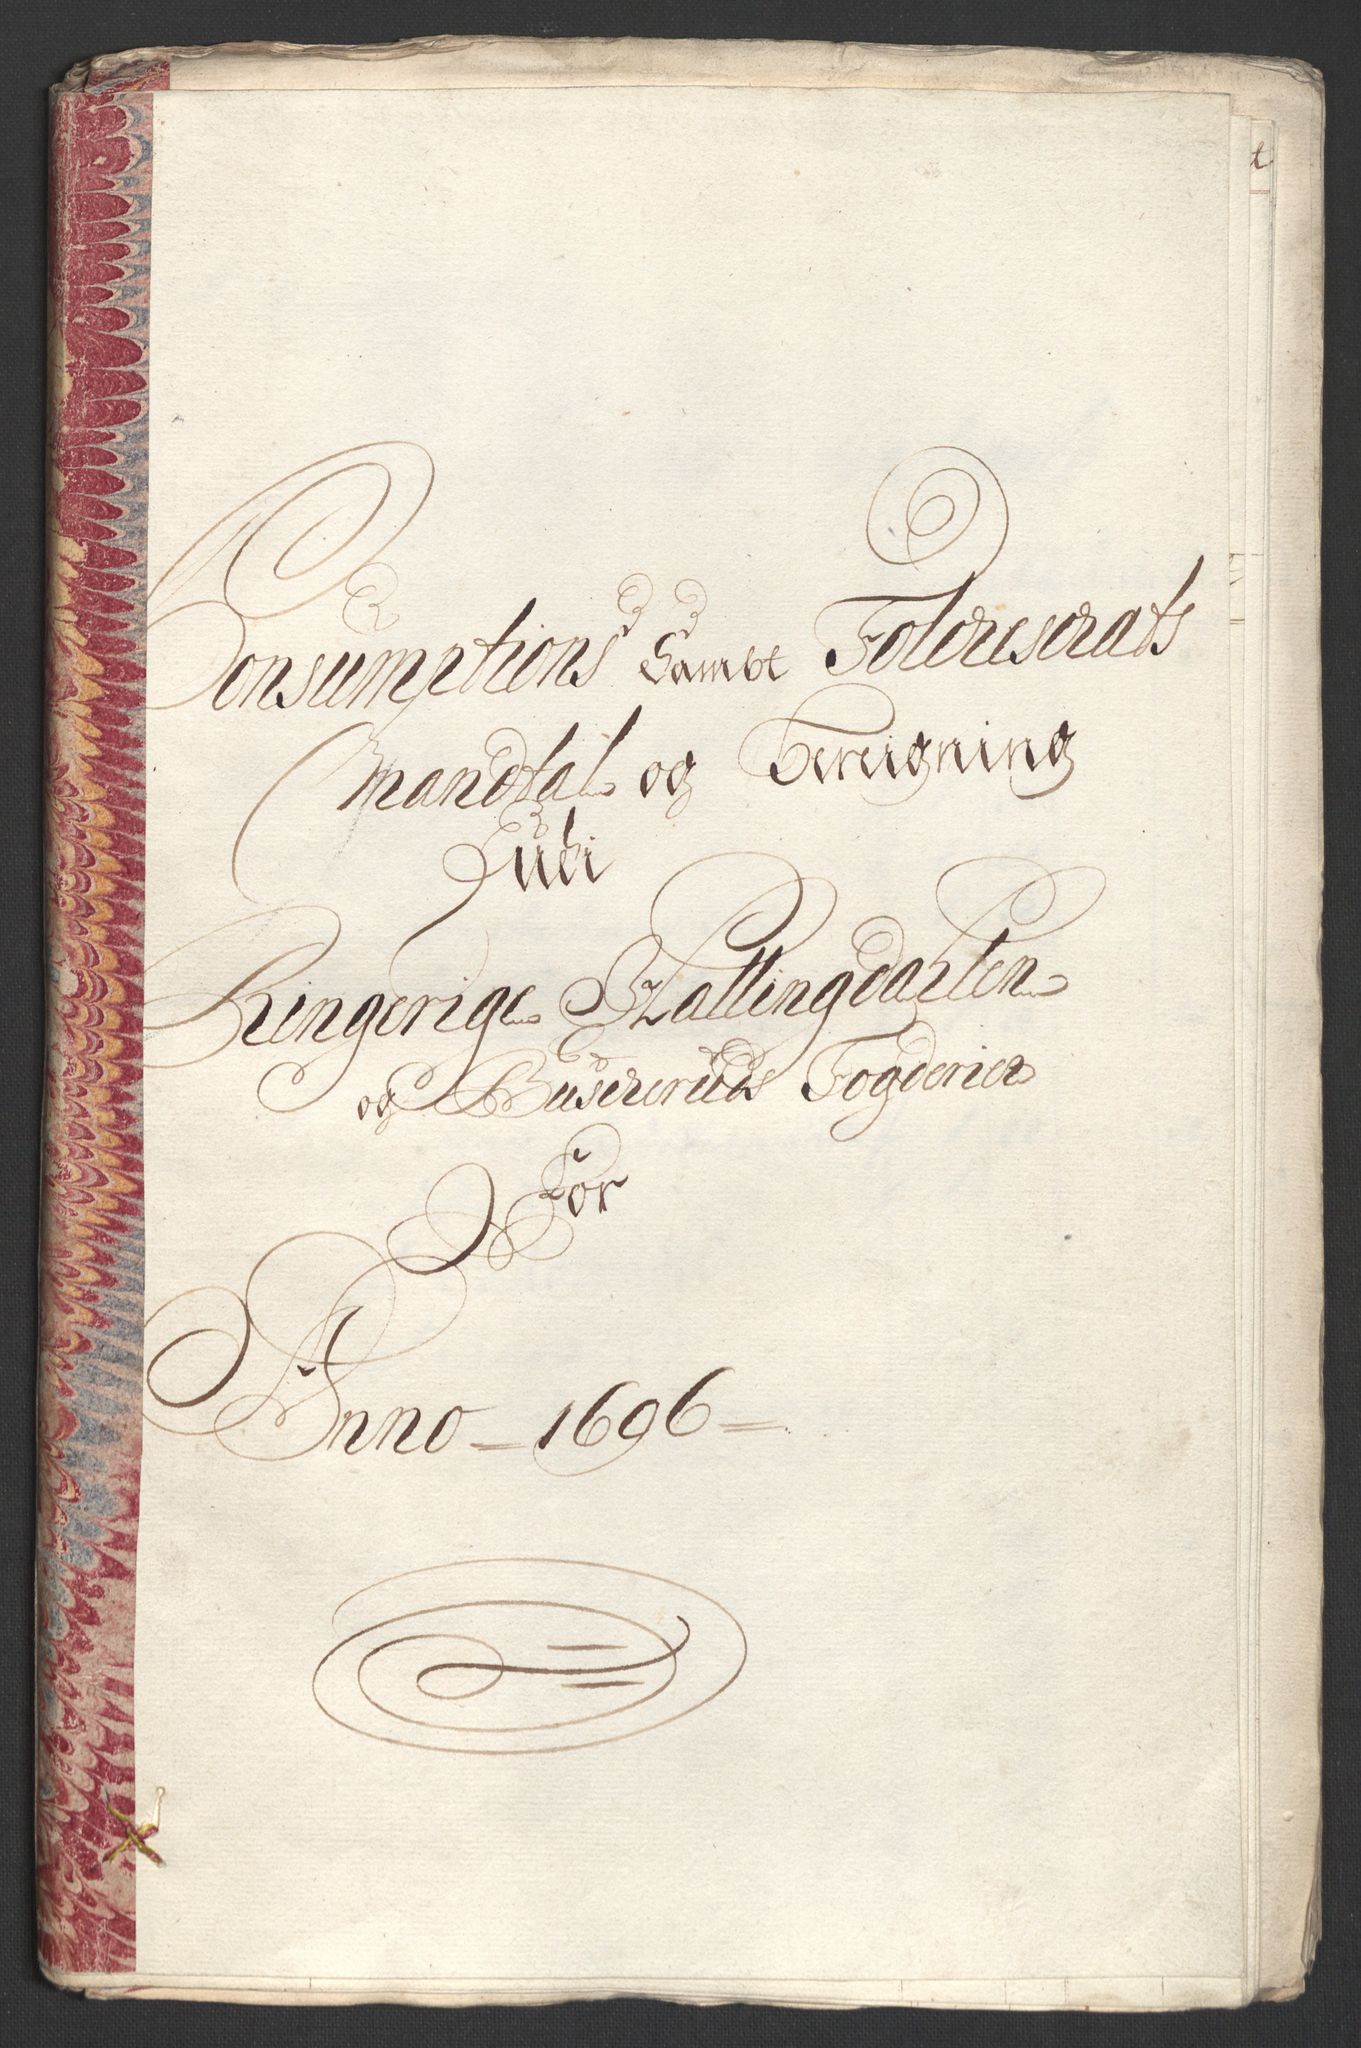 Consumptions Sambt Folcheschats
Mandtal og Bereigning
Udi
Ringerige Hallingdahlen
og Buscheruds Fogderier
For
Anno - 1696 -